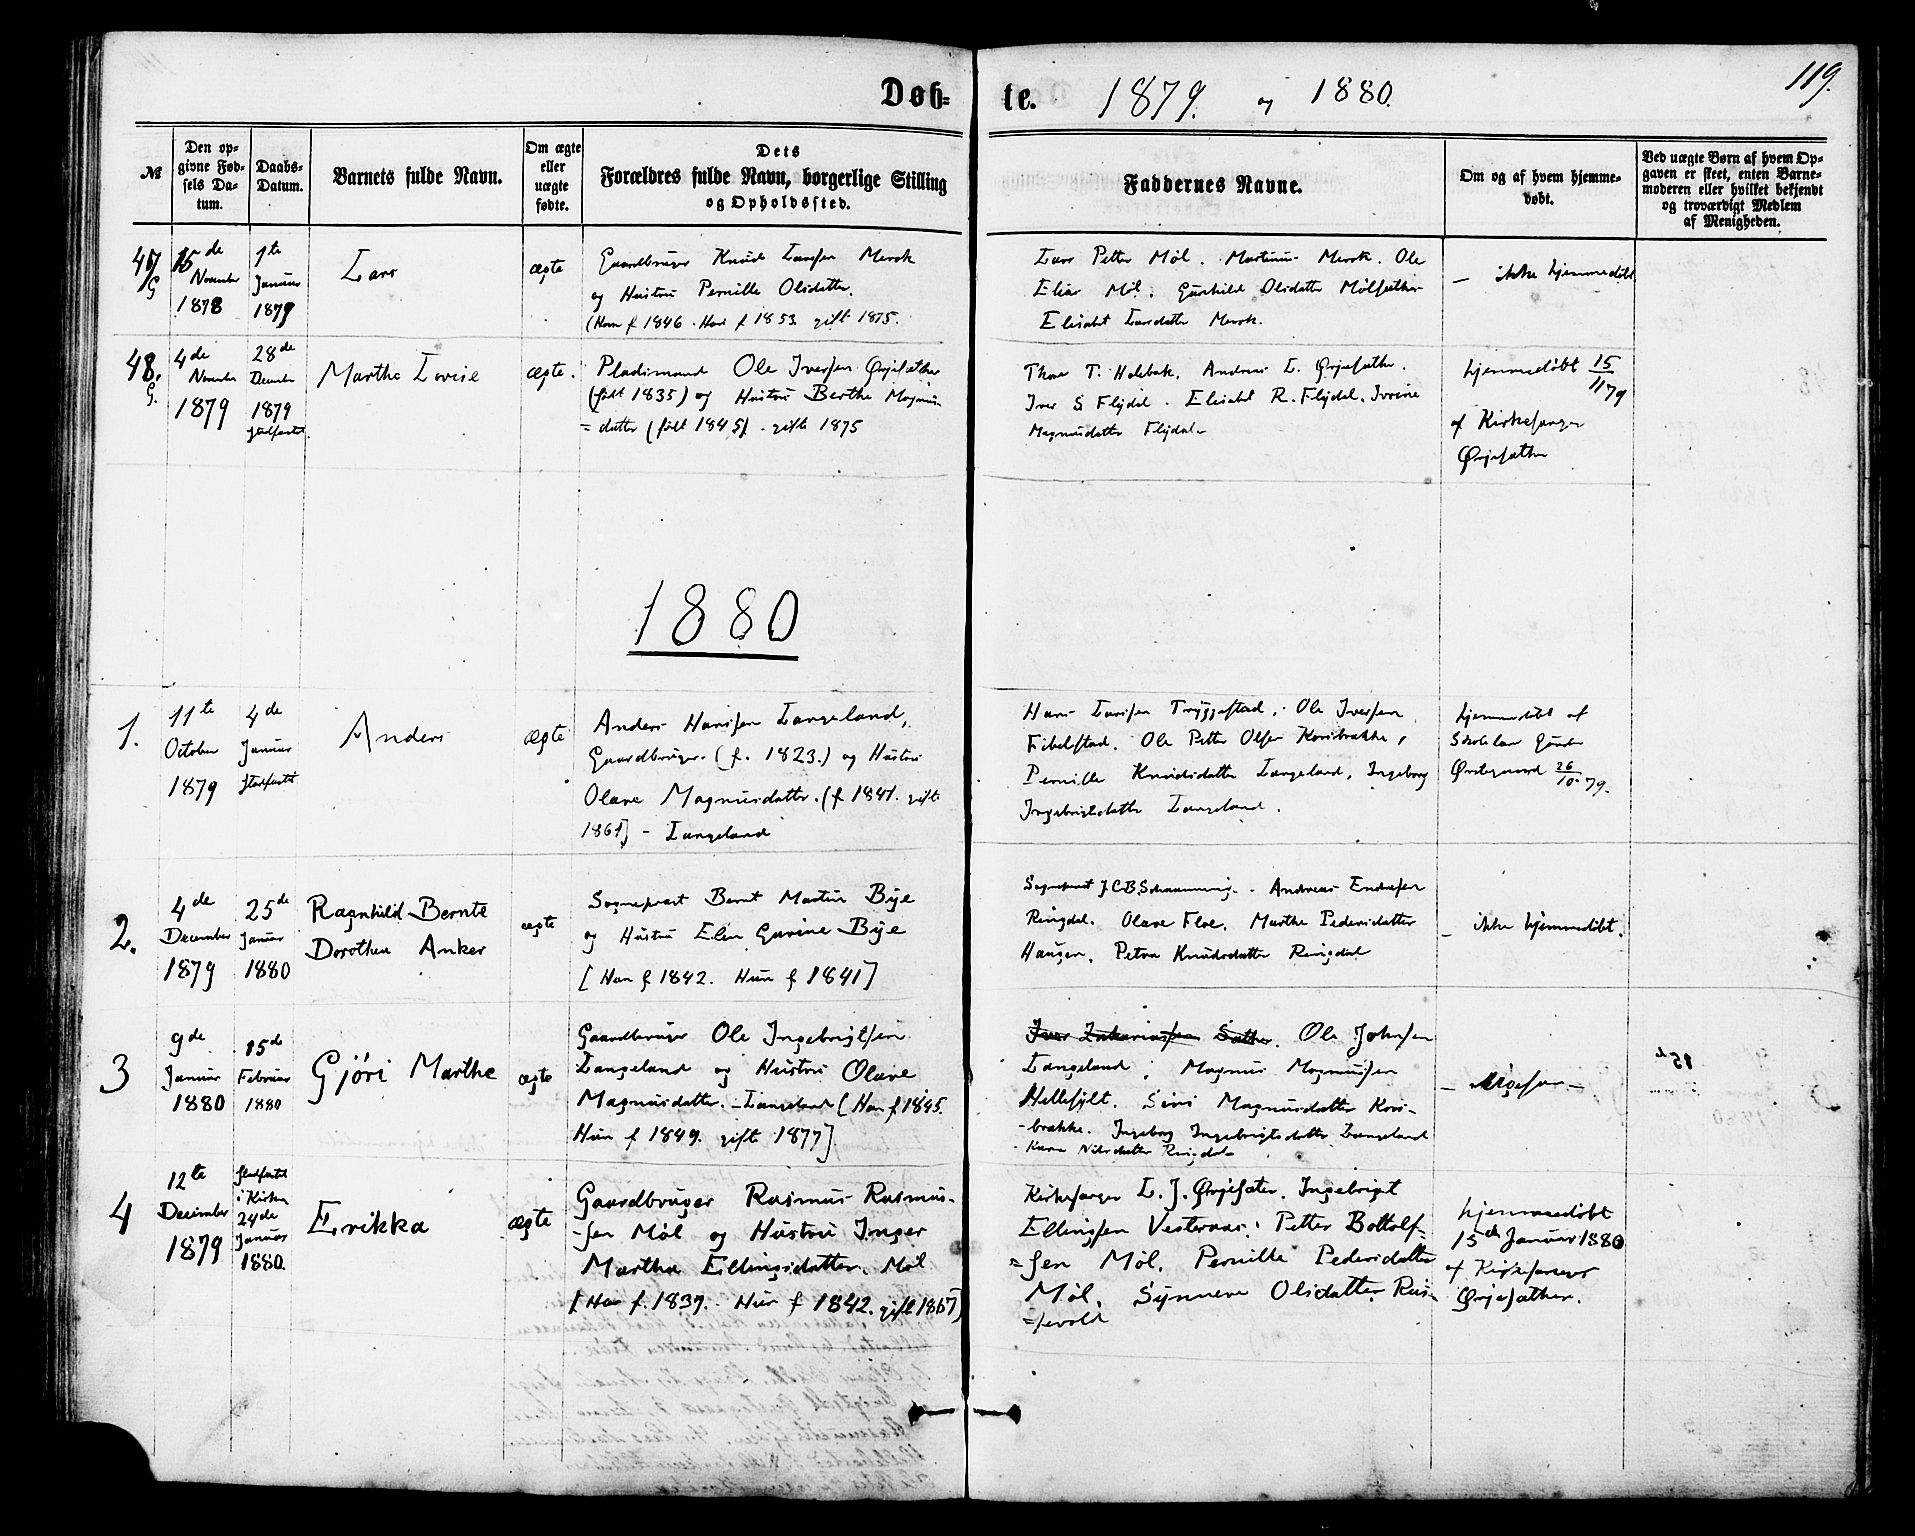 119.
Døb= te. 1879. og 1880.
№
Den op=
givne Fød=
sels Da=
tum.
Daabs=
Datum.
Barnets fulde Navn.
Om ægte
eller
uægte
fødte.
Dets
Forældres fulde Navn, borgerlige Stilling
og Opholdssted.
Faddernes Navne.
Om og af hvem hjemme=
døbt.
Ved uægte Børn af hvem Op=
gaven er skeet, enten Barne=
moderen eller hvilket bekjendt
og troværdigt Medlem
af Menigheden.
47
G
15de
November
1878
1te
Januar
1879
Lars
ægte
Gaardbruger Knud Larsen Merok
og Hustru Pernille Olsdatter.
(Han f 1846. Hun f 1853. gift 1875.
Lars Petter Møl. Martinus Merok. Ole
Elias Møl. Gunhild Olsdatter Mølsæther
Elisabet Larsdatter Merok.
– ikke hjemmedøbt
48.
G.
4de
November
1879
28de
December
1879
stadfæstet.
Marthe Lovise
ægte.
Pladsmand Ole Iversen Ørjesæther
(født 1835) og Hustru Berthe Magnus
= datter (født 1845). gifte 1875
Thore T. Holebak. Andreas L. Ørjesæther.
Iver S Flydal. Elisabet R. Flydal.
Magnusdatter Flydal
hjemmedøbt 15/11 79
af Kirkesanger
Ørjesæther
1880
1.
11te
October
1879
4de
Januar
stadfæstet
Anders
ægte
Anders Hansen Langeland,
Gaardbruger. (f. 1823.) og Hustru
Olave Magnusdatter. (f 1841. gifte
1861) – Langeland
Hans Larsen Tryggestad, Ole Iversen
Fibelstad. Ole Petter Olsen Korsbrække,
Pernille Knudsdatter Langeland, Ingeborg
Ingebrigtsdatter Langeland.
hjemmedøbt af
Skolelær Gunder
Østegaard 26/10 79.
2.
4de
December
1879
25de
Januar
1880
Ragnhild Bernte
Dorothea Anker
ægte
Sogneprest Bernt Martin Bye
og Hustru Elen Gurine Bye
[Han f 1842. Hun f 1841]
Sogneprest J.C.B. Schaanning. Andreas Endresen
Ringdal. Olave Floe. Marthe Pedersdatter
Haugen. Petra Knudsdatter Ringdal
– ikke hjemmedøbt.
3
9de
Januar
1880
15de
Februar
1880
Gjøri Marthe
ægte
Gaardbruger Ole Ingebrigtsen
Langeland og Hustru Olave
Magnusdatter. – Langeland [Han f 1845.
Hun f 1849. gift 1877]
Iver Zakariassen Sæther. Ole Johnsen
Langeland, Magnus Magnussen
Hellesylt. Sivi Magnusdatter Kors-
-brække. Ingeborg Ingebrigtsdatter Langeland
Karen Nilsdatter Ringdal
– ligesaa –
4
12te
December
1879
stadfæstet
i Kirken
24de
Januar
1880.
Erikka
ægte
Gaardbruger Rasmus Rasmus-
-sen Møl og Hustru Inger
Marthe Ellingsdatter. Møl
[Han f. 1837. Hun f 1842. gift 1867]
Kirkesanger L. J. Ørjesæter. Ingebrigt
Ellingsen Vesteraas. Petter Bottolf-
=sen Møl. Pernille Pedersdatter
Møl. Synneve Olsdatter Rus-
=sevold
hjemmedøbt
15de Januar 1880
af Kirkesanger
Ørjesæther.